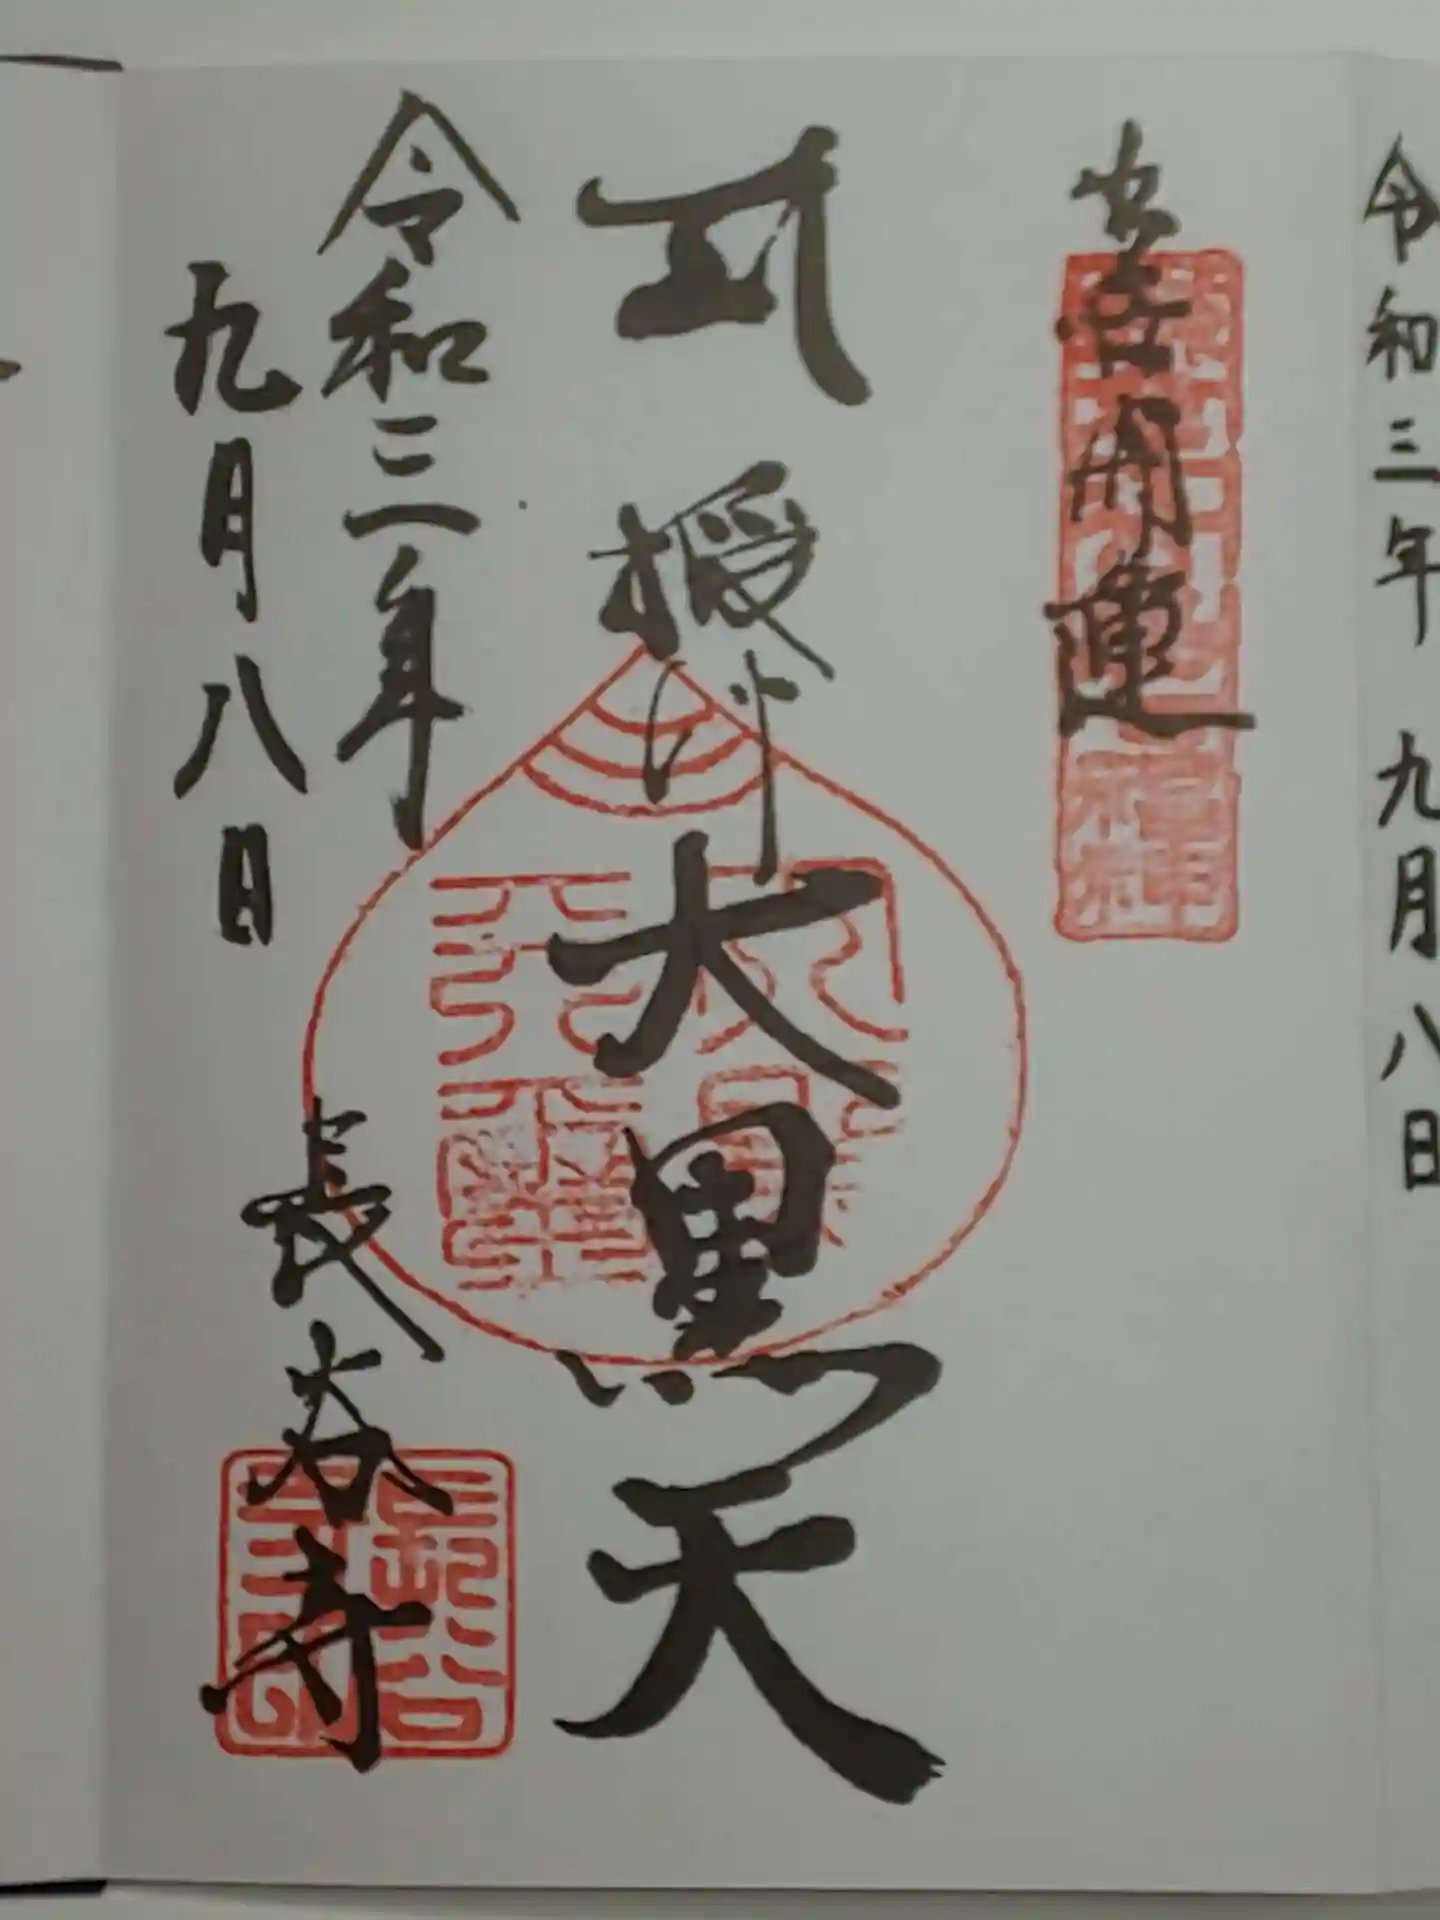 令和三年 九月八日
出世開運
授け大黒天
令和三年
九月八日
長谷寺